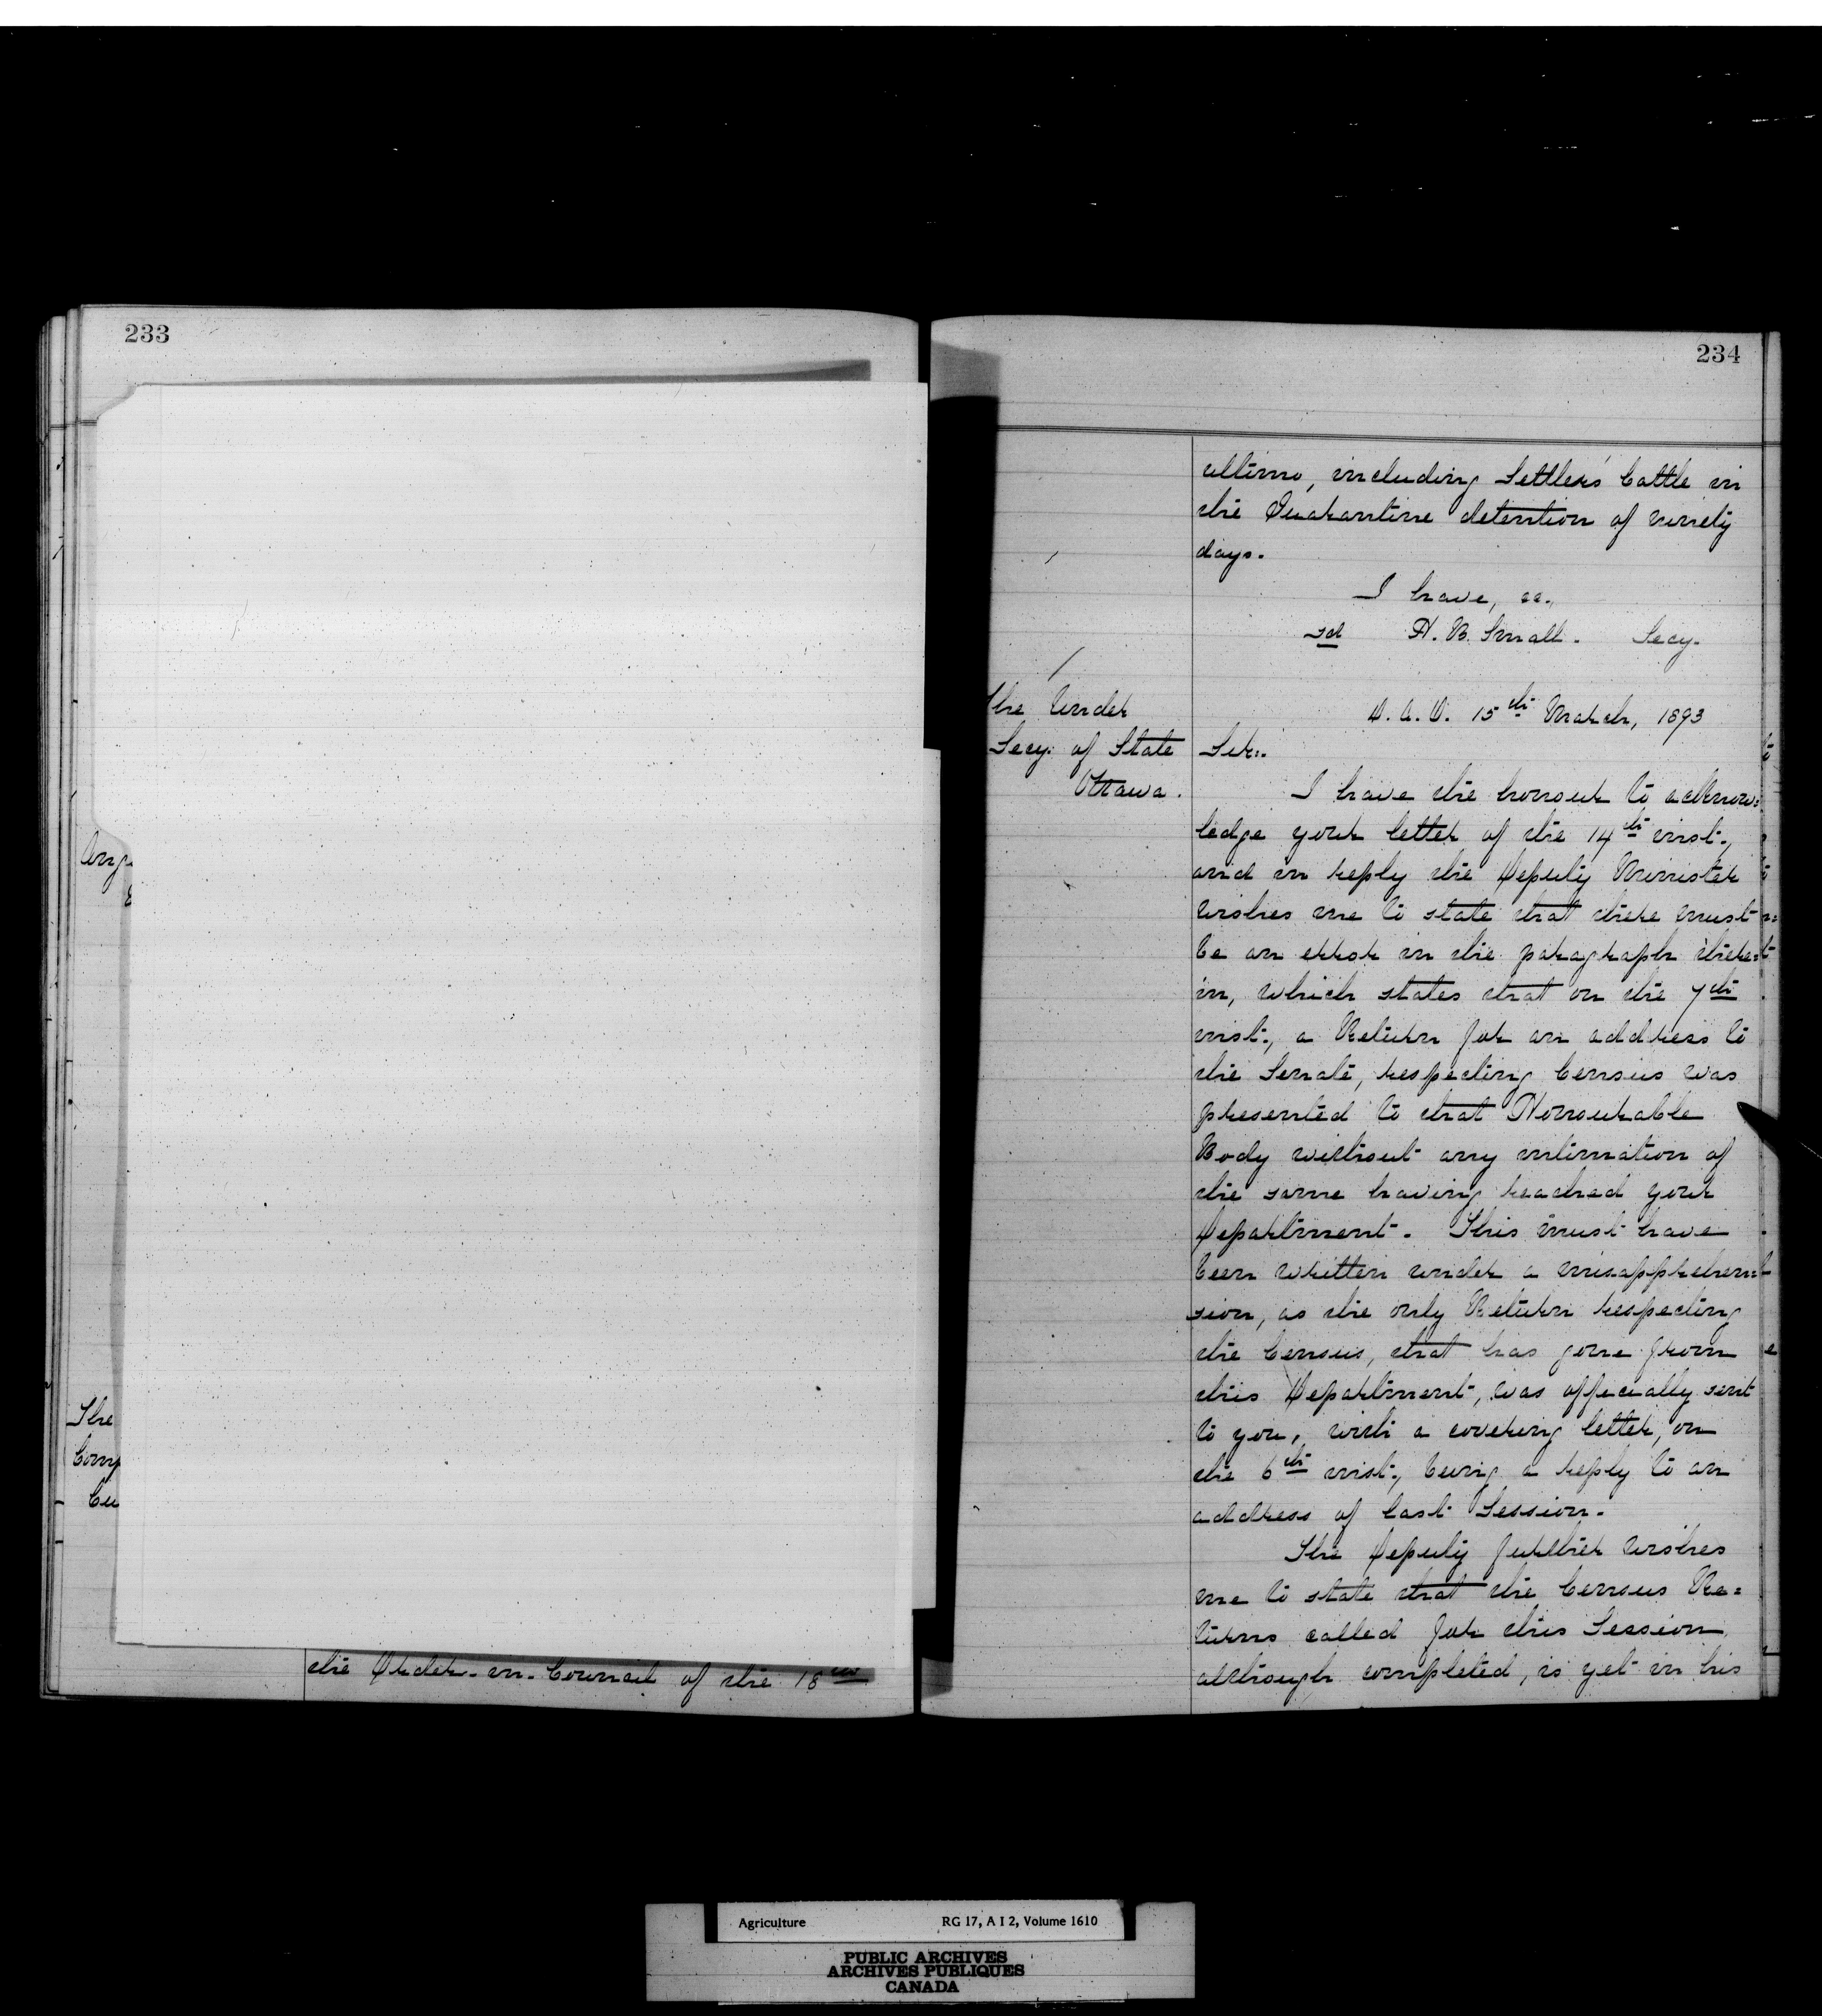 233
Ang
The
Comp
Cu
the Order-in-Council of the 18th
234
ultimo, including Settlers' Cattle in
the Quarantine detention of ninety
days.
I have, &c.,
sd H. B. Small. Secy.
The Under
Secy. of State
Ottawa.
D. A. O. 15th March, 1893
Sir:.
I have the honour to acknow=
ledge your letter of the 14th inst.,
and in reply the Deputy Minister
wishes me to state that there must
be an error in the paragraph there=
in, which states that on the 7th
inst., a Return for an address to
the Senate, respecting Census was
presented to that Honourable
Body without any intimation of
the same having reached your
Department. This must have
been written under a misapprehen=
sion, as the only Return respecting
the Census, that has gone from
this Department, was officially sent
to you, with a covering letter, on
the 6th inst., being a reply to an
address of last Session.
The Deputy further wishes
me to state that the Census Re=
turns called for this Session
although completed, is yet in his
Agriculture RG 17, A I 2, Volume 1610
PUBLIC ARCHIVES
ARCHIVES PUBLIQUES
CANADA